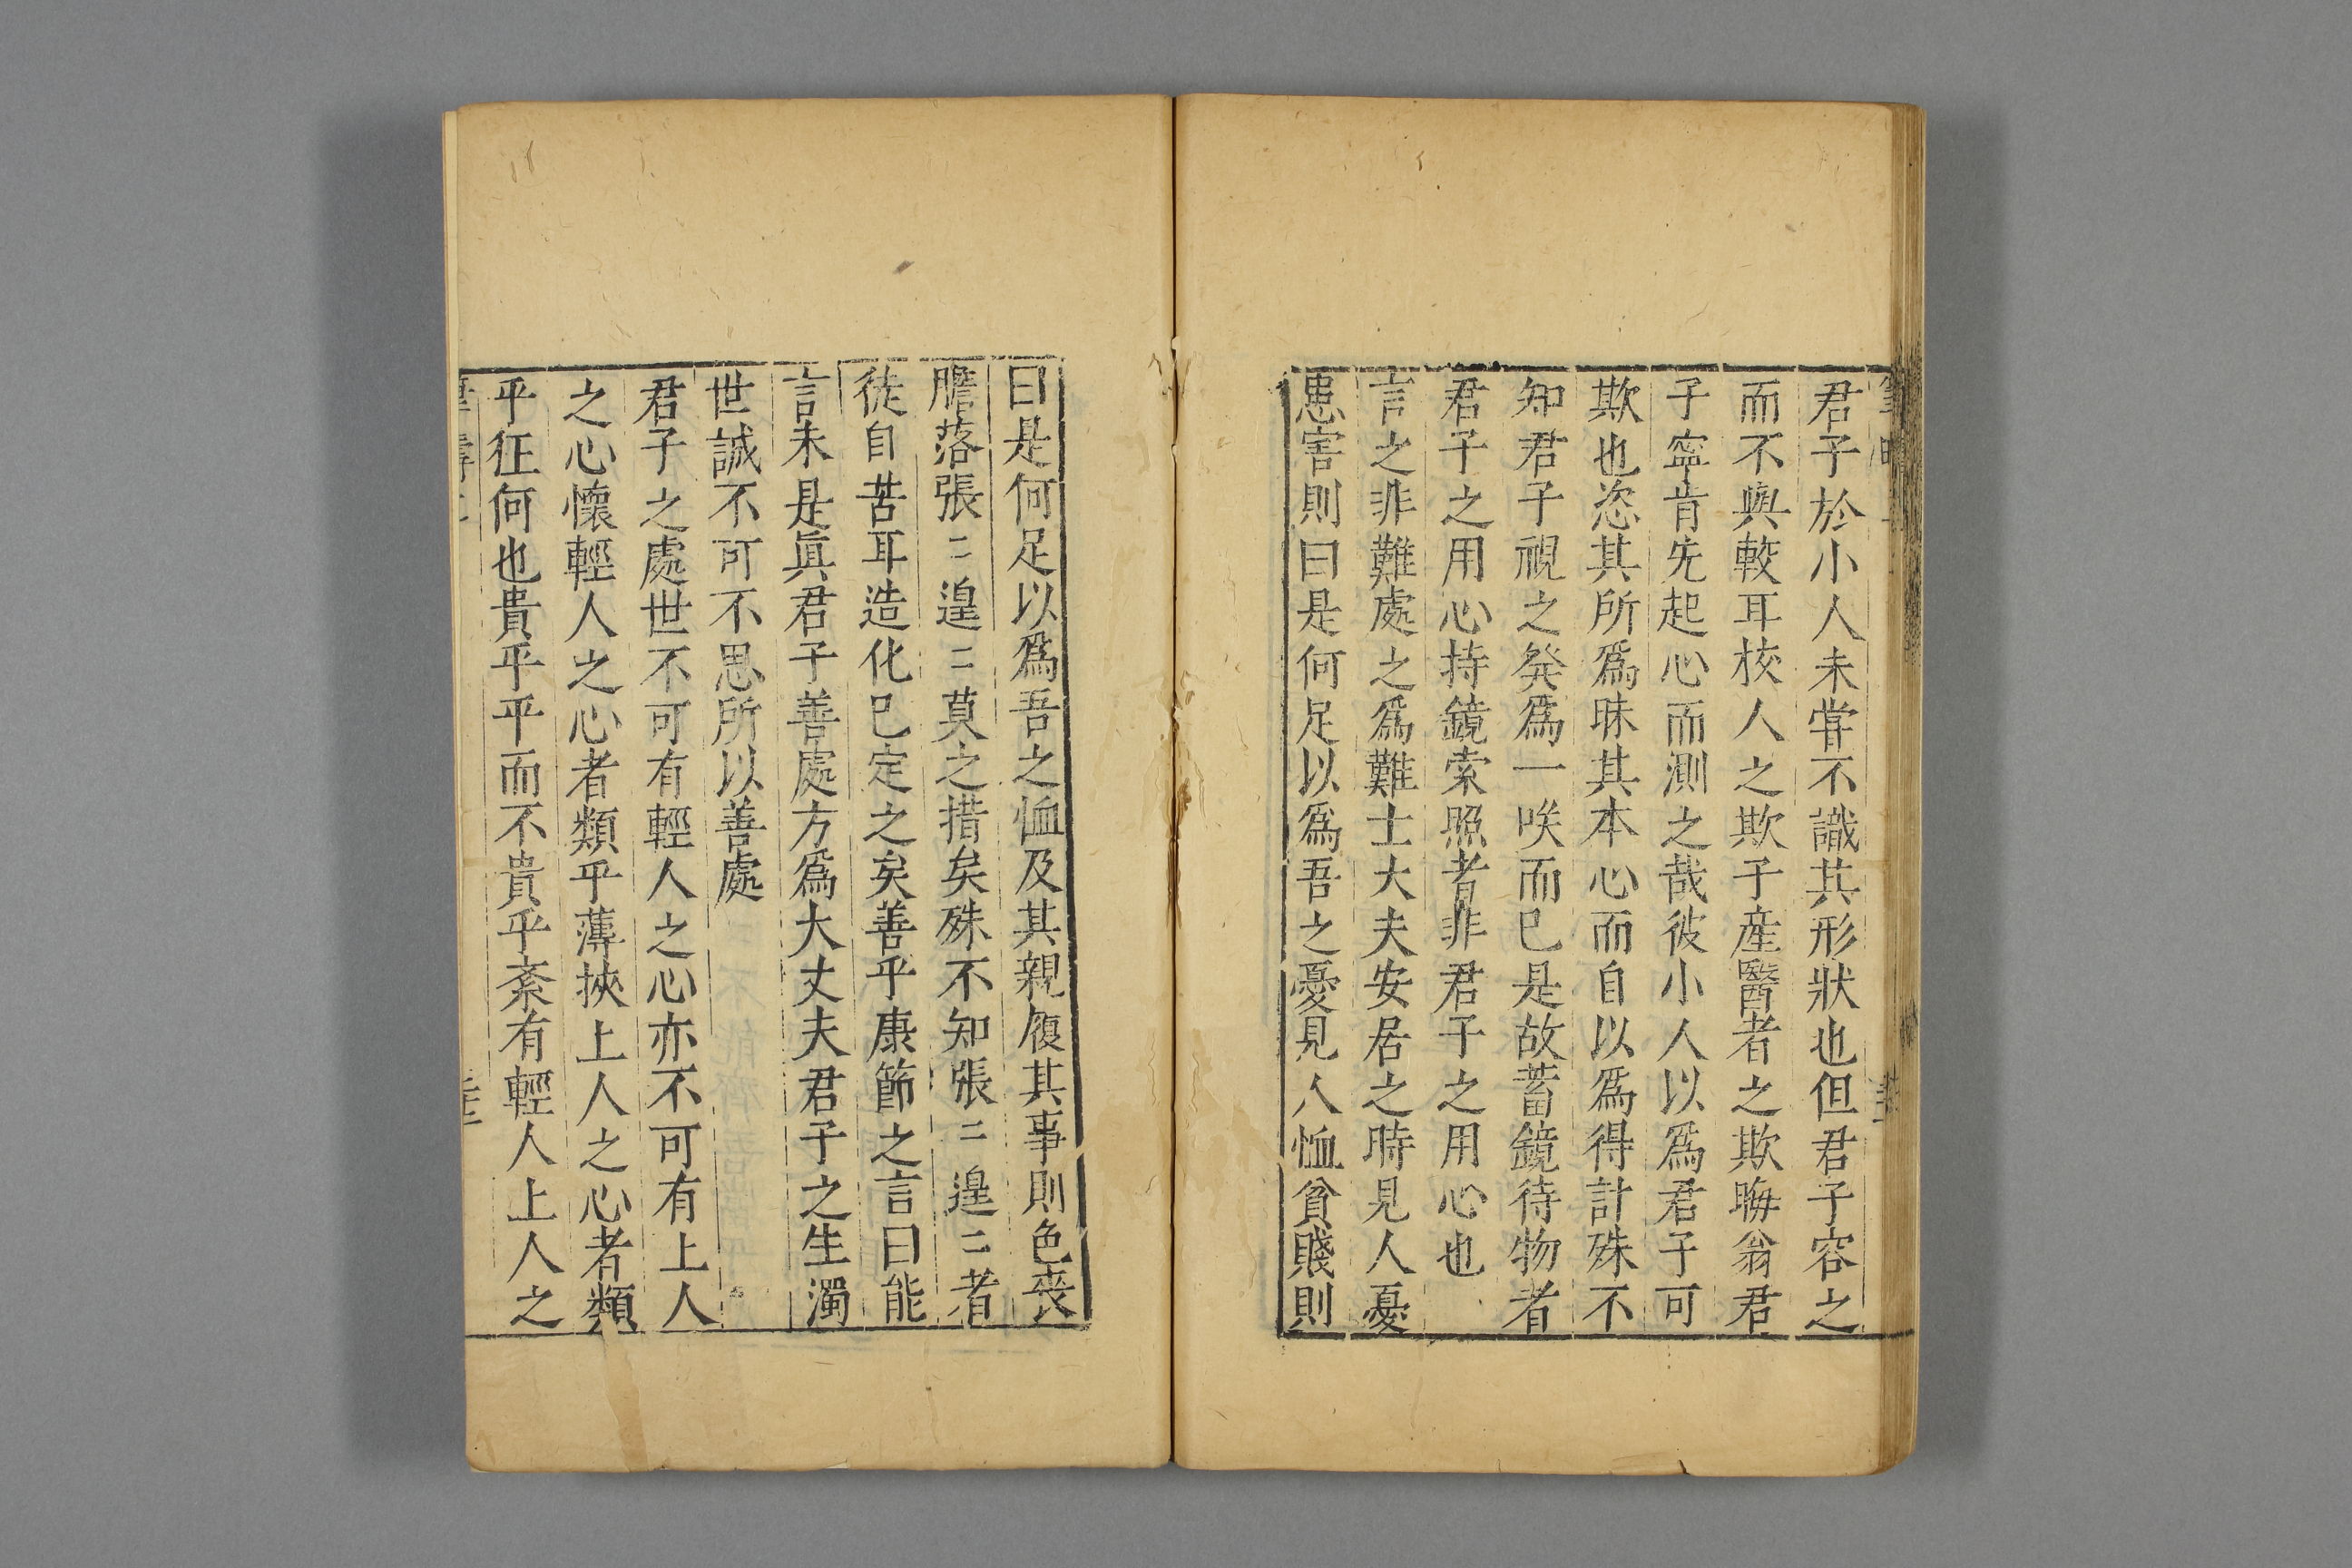 君子於小人未甞不識其形狀也但君子容之
而不與較耳校人之欺子産醫者之欺晦翁君
子寧肯先起心而測之哉彼小人以爲君子可
欺也恣其所爲昧其本心而自以爲得計殊不
知君子視之癸爲一咲而已是故蓄鏡待物者
君子之用心持鏡索照者非君子之用心也
言之非難處之爲難士大夫安居之時見人憂
患害則曰是何足以爲吾之憂見人恤貧賤則
曰是何足以爲吾之恤及其親履其事則色喪
膽落張〻遑〻莫之措矣殊不知張〻遑〻者
徒自苦耳造化已定之矣善乎康節之言曰能
言未是眞君子善處方爲大丈夫君子之生濁
世誠不可不思所以善處
君子之處世不可有輕人之心亦不可有上人
之心懷輕人之心者類乎薄挾上人之心者類
乎征何也貴乎平而不貴乎紊有輕人上人之